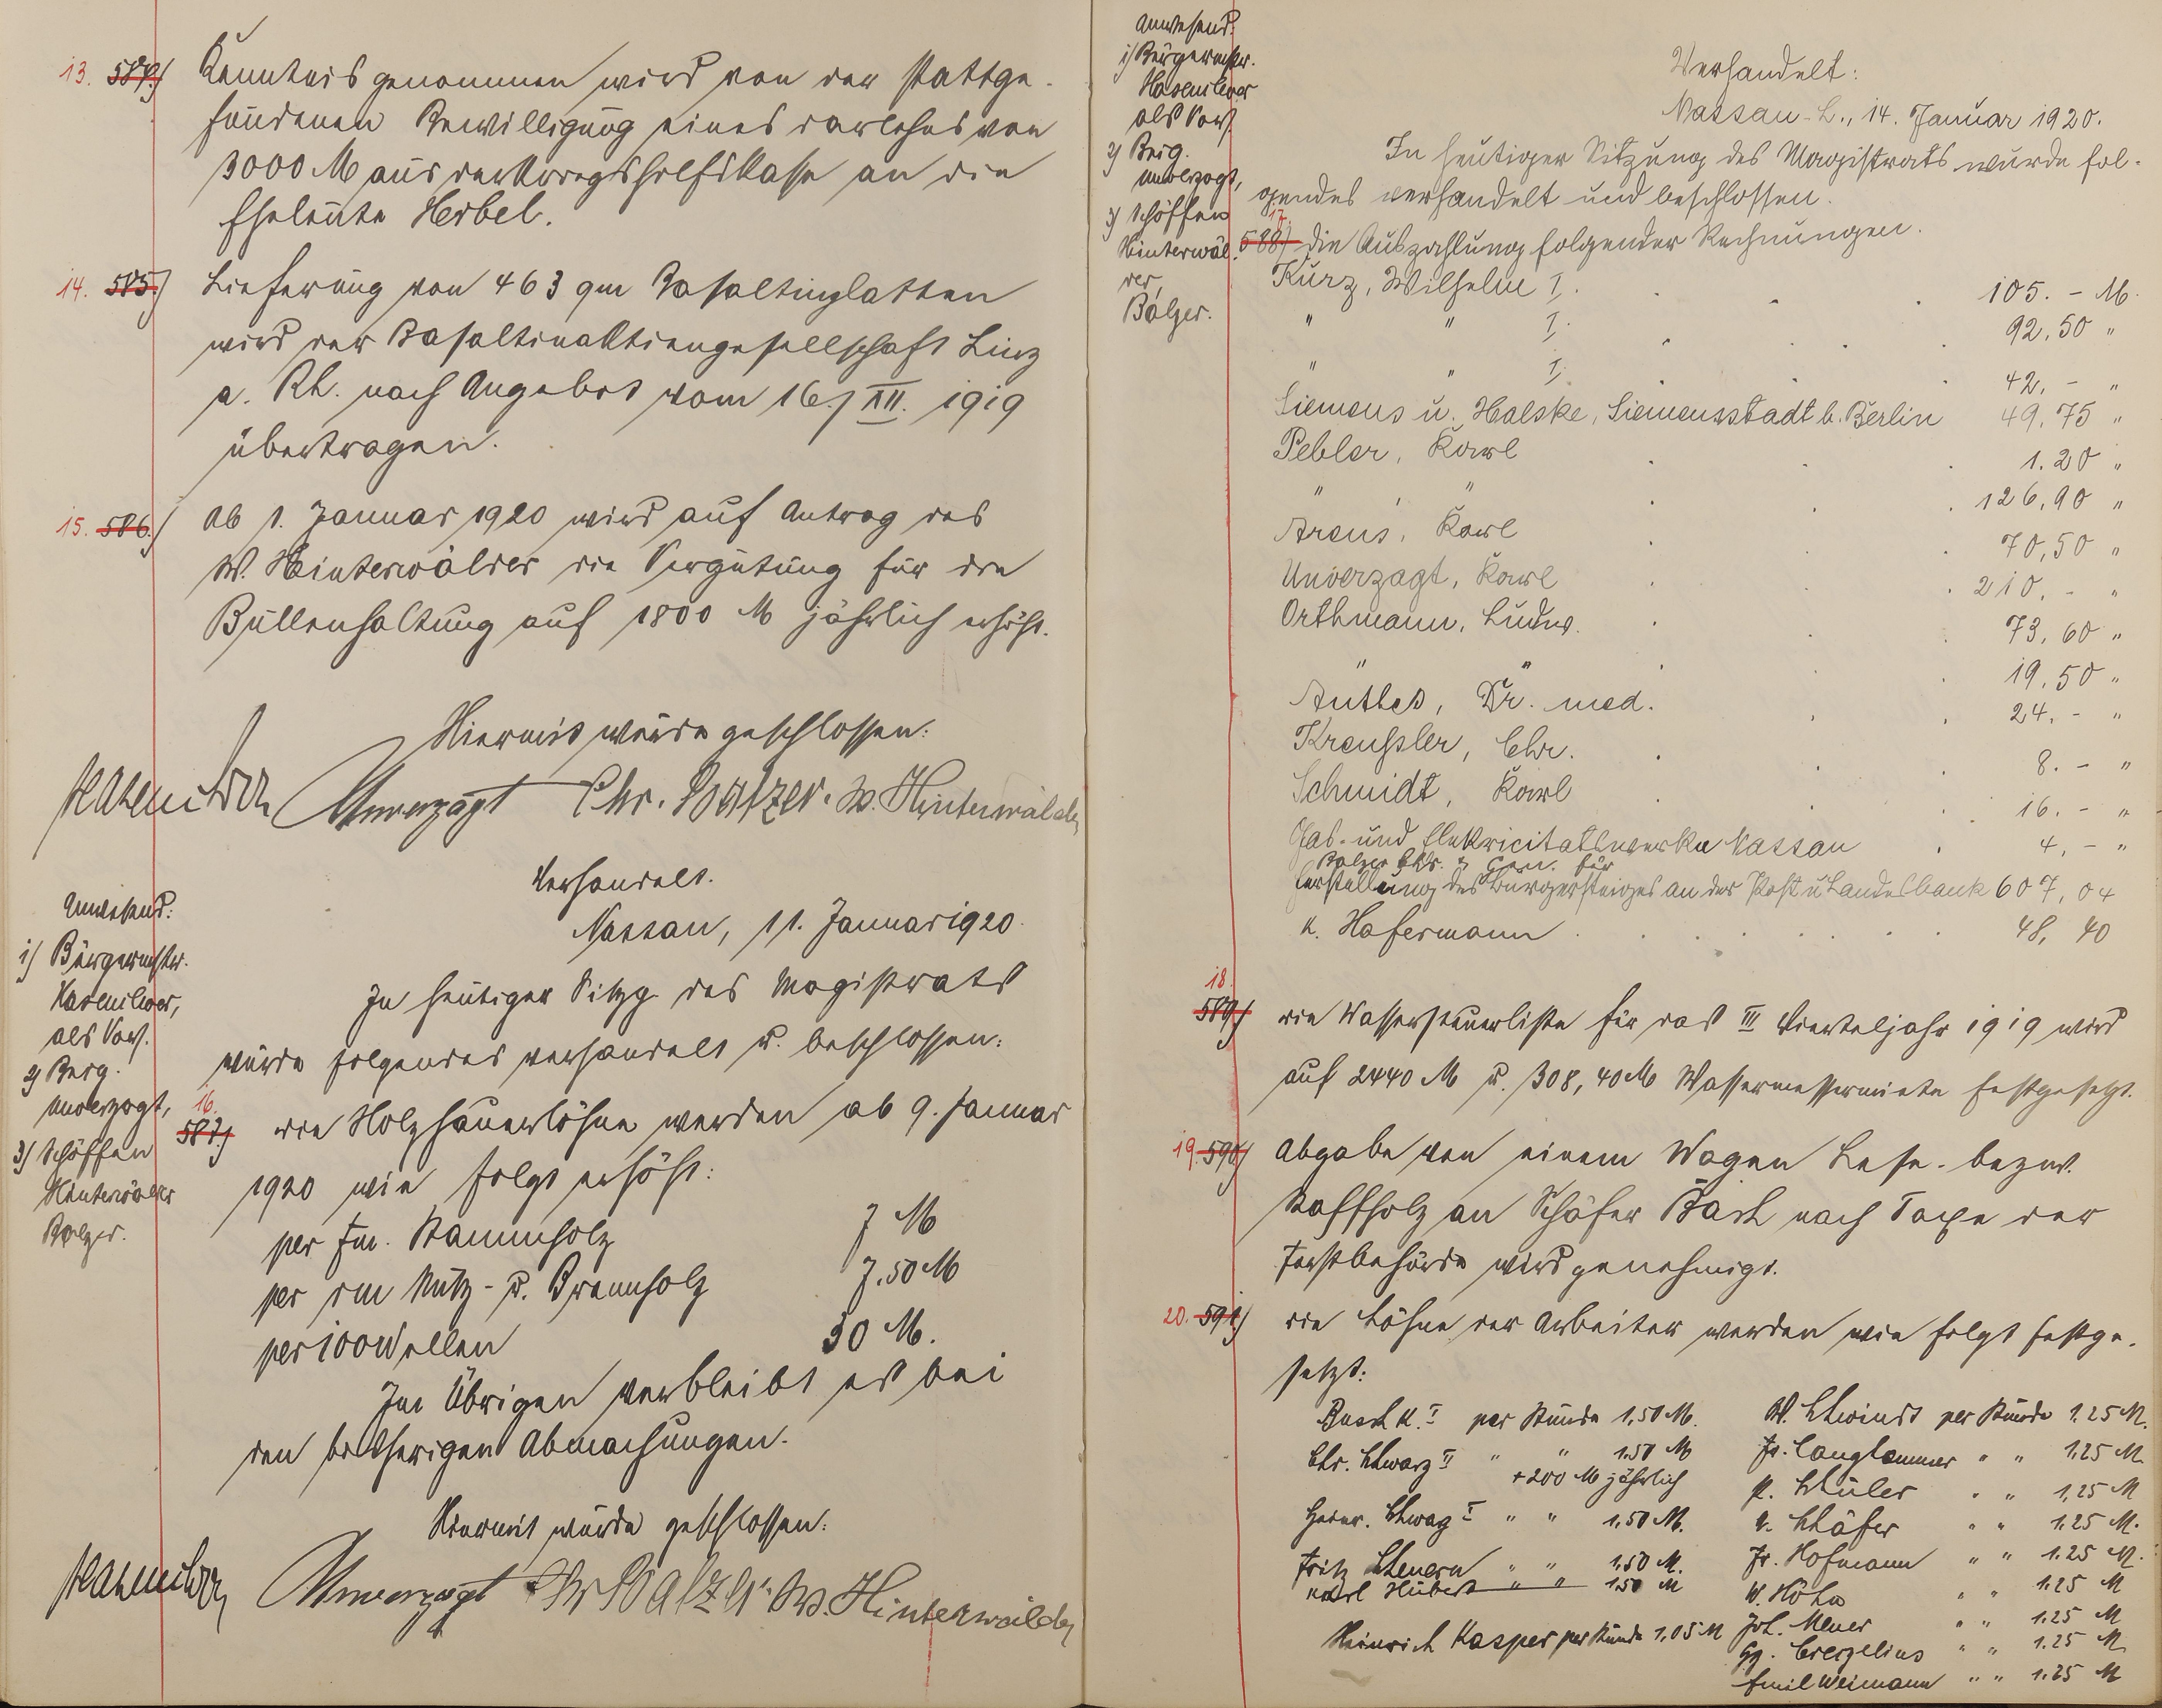 13. 584.) Kenntnis genommen wird von der stattge-
fundenen Bewilligung eines Darlehns von
3000 M aus der Kriegshilfskasse an die
Eheleute Herbel.
14. 585.) Lieferung von 463 qm Basaltinplatten
wird der Basaltinaktiengesellschaft Linz
a. Rh. nach Angebot vom 16./XII. 1919
übertragen.
15. 586.) Ab 1. Januar 1920 wird auf Antrag des
W. Hinterwälder die Vergütung für die
Bullenhaltung auf 1800 M jährlich erhöht.
Hiermit wurde geschlossen:
Hasenclever Unverzagt Chr. Balzer. W. Hinterwälder
Verhandelt.
Nassau, 11. Januar 1920.
Anwesend:
1) Bürgermstr.
Hasenclever,
als Vors.
2) Beig.
Unverzagt,
3) Schöffen
Hinterwälder
Balzer.
In heutiger Sitzg. des Magistrats
wurde folgendes verhandelt u. beschlossen:
16. 587.) Die Holzhauerlöhne werden ab 9. Januar
1920 wie folgt erhöht:
per fm. Stammholz 7 M
per rm Nutz- u. Brennholz 7.50 M
per 100 Wellen 30 M.
Im Übrigen verbleibt es bei
den bisherigen Abmachungen.
Hiermit wurde geschlossen:
Hasenclever Unverzagt Chr Balzer. W. Hinterwälder
Anwesend:
1) Bürgermstr.
Hasenclever
als Vors.
2) Beig.
Unverzagt,
3) Schöffen
Hinterwäl-
der,
Balzer.
Verhandelt:
Nassau-L., 14. Januar 1920.
In heutiger Sitzung des Magistrats wurde fol-
gendes verhandelt und beschlossen.
17. 588) Die Auszahlung folgender Rechnungen.
Kurz, Wilhelm I. 105.- M.
" " I. 92,50 "
" " I. 42,- "
Siemens u. Halske, Siemensstadt b. Berlin 49,75 "
Pebler, Karl 1.20 "
" " 126,90 "
Arens, Karl 70,50 "
Unverzagt, Karl 210.- "
Orthmann, Ludw. 73,60 "
" " 19.50 "
Anthes, Dr. med. 24.- "
Kreussler, Chr. 8.- "
Schmidt, Karl 16.- "
Gas- und Elektricitätswerke Nassau 4,- "
Balzer Chr. & Gen. für
Herstellung des Bürgersteiges an der Post u Landesbank 607,04
K. Hafermann 48,40
18. 589) Die Wassersteuerliste für das III Vierteljahr 1919 wird
auf 2440 M u. 308,40 M Wassermessermiete festgesetzt.
19. 590) Abgabe von einem Wagen Lese- bezw.
Raffholz an Schäfer Bach nach Taxe der
Forstbehörde wird genehmigt.
20. 591.) Die Löhne der Arbeiter werden wie folgt festge-
setzt:
Busch K. I per Stunde 1,50 M. W. Schwindt per Stunde 1.25 M.
Chr. Schwarz II " " 1.50 M Fr. Langhammer " " 1.25 M
+ 200 M jährlich P. Schuler " " 1,25 M
Heinr. Schwarz I " " 1,50 M. Schäfer " " 1.25 M.
Fritz Scheuern " " 1.50 M. Fr. Hofmann " " 1.25 M.
Karl Hubert " " 1.50 M W. Höhn " " 1.25 M
Heinrich Kasper per Stunde 1,05 M Joh. Meuer " " 1.25 M
Gg. Crezelius " " 1.25 M
Emil Weimann " " 1.25 M